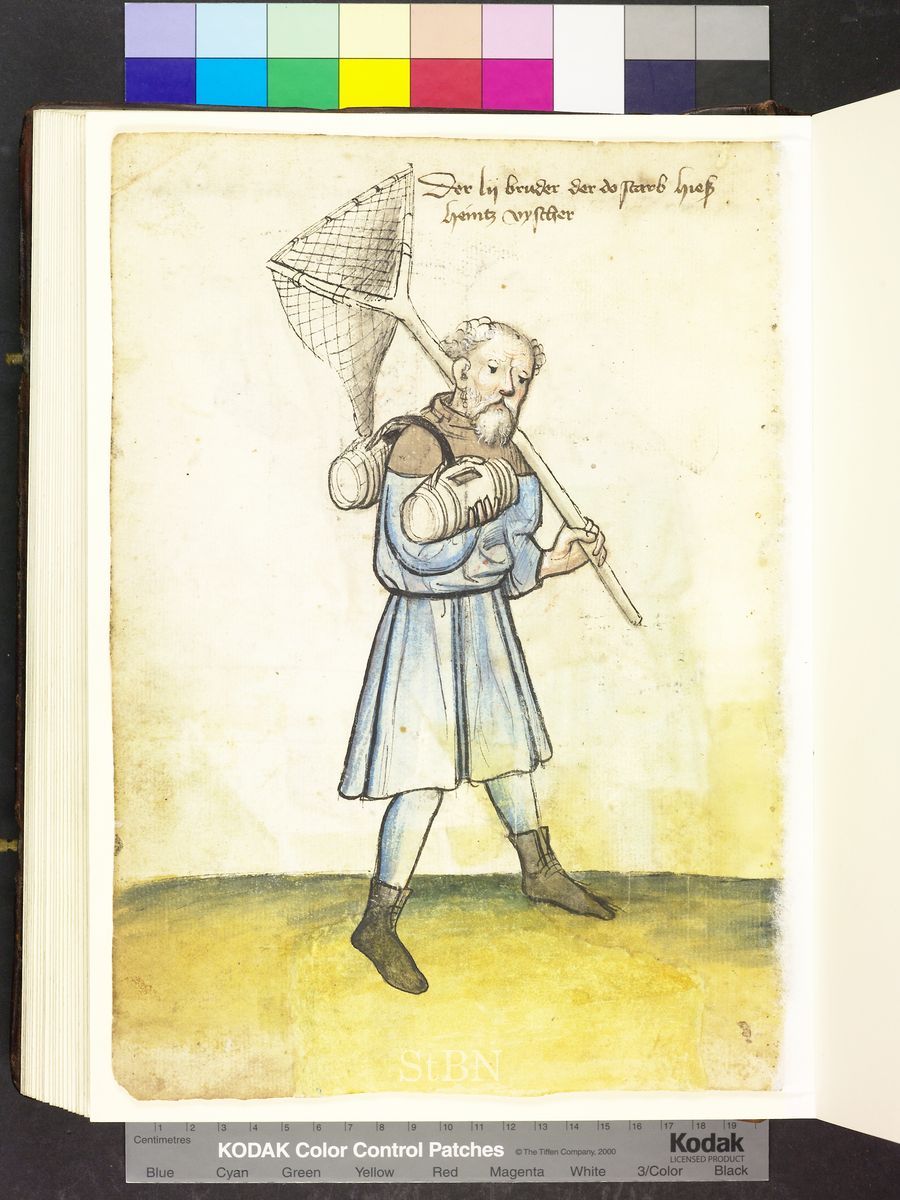 Der lij bruder der do starb hieß
heintz vyscher
StBN
1 2 3 4 5 6 7 8 9 10 11 12 13 14 15 16 17 18 19
Centimetres
KODAK Color Control Patches © The Tiffen Company, 2000 Kodak
LICENSED PRODUCT
Blue Cyan Green Yellow Red Magenta White 3/Color Black